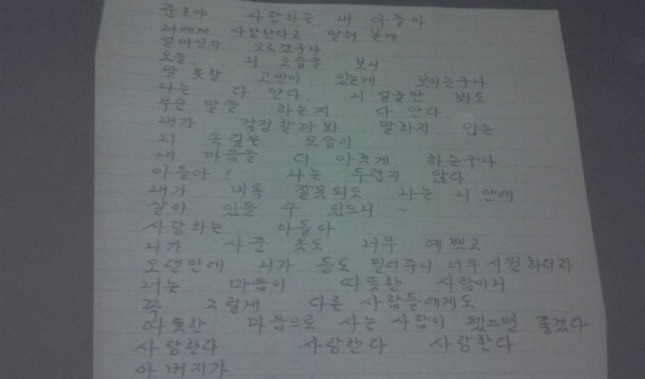 준호야 사랑하는 내 아들아
너에게 사랑한다고 말해 본게
얼마인지 모르겠구나
오늘, 너 모습을 보니
말 못할 고민이 있는게 보이는구나
나는 다 안다 니 얼굴만 봐도
무슨 말을 하는지 다 안다
내가 걱정할까 봐 말하지 않는
너 속깊은 모습이
내 마음을 더 아프게 하는구나
아들아! 나는 두렵지 않다
내가 비록 잘못되도 나는 너 안에
살아 있을 수 있으니 ~
사랑하는 아들아
니가 사준 옷도 너무 예쁘고
오랜만에 니가 등도 밀어주니 너무 시원하더라
너는 마음이 따뜻한 사람이니
꼭 그렇게 다른 사람들에게도
따뜻한 마음으로 사는 사람이 됐으면 좋겠다
사랑한다 사랑한다 사랑한다
아버지가